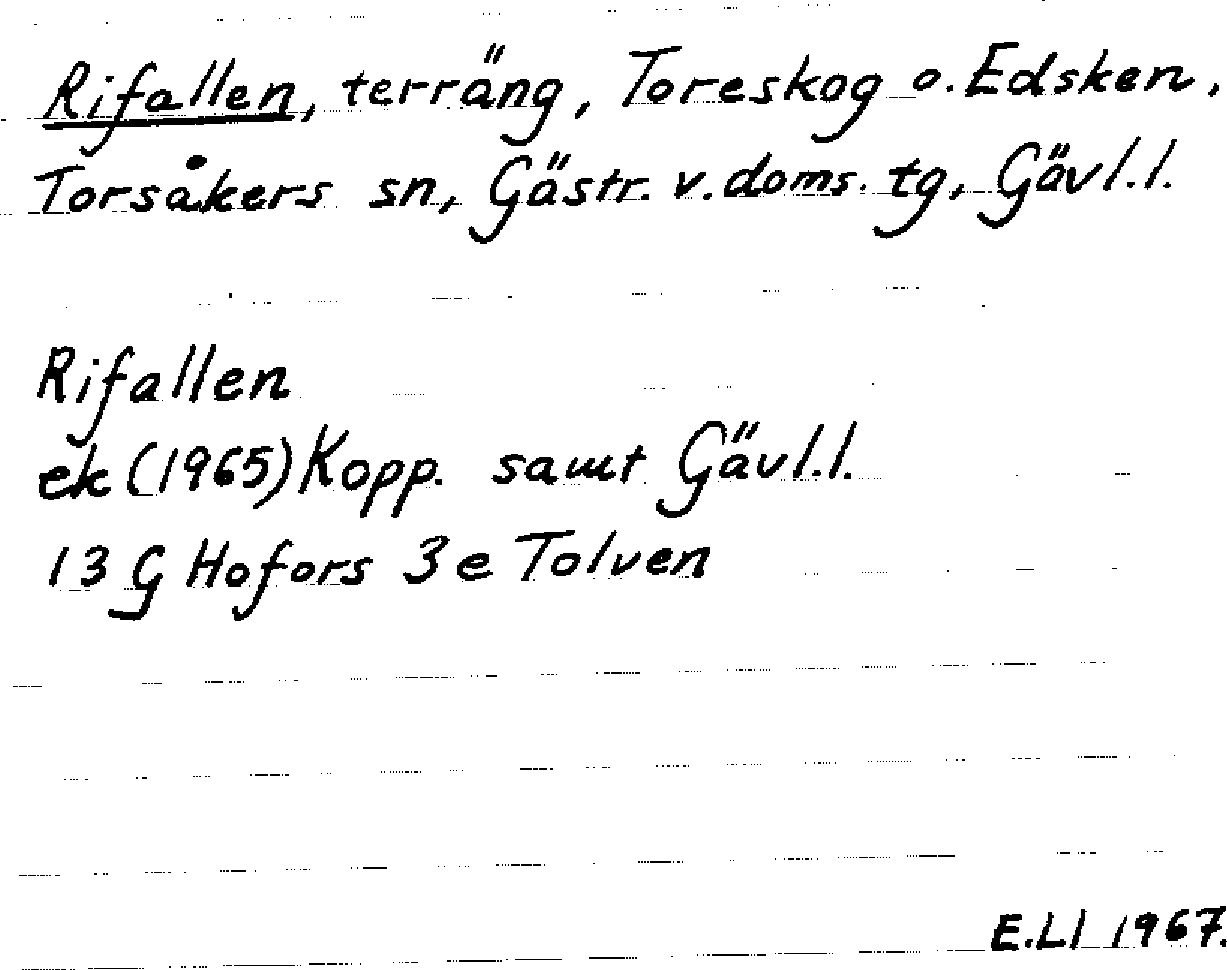 Rifallen, terräng, Toreskog o. Edsken,
Torsåkers sn, Gästr. v. doms. tg, Gävl. l.
Rifallen
ek (1965) Kopp. samt Gävl. l.
13 G Hofors 3 e Tolven
E.Ll 1967.